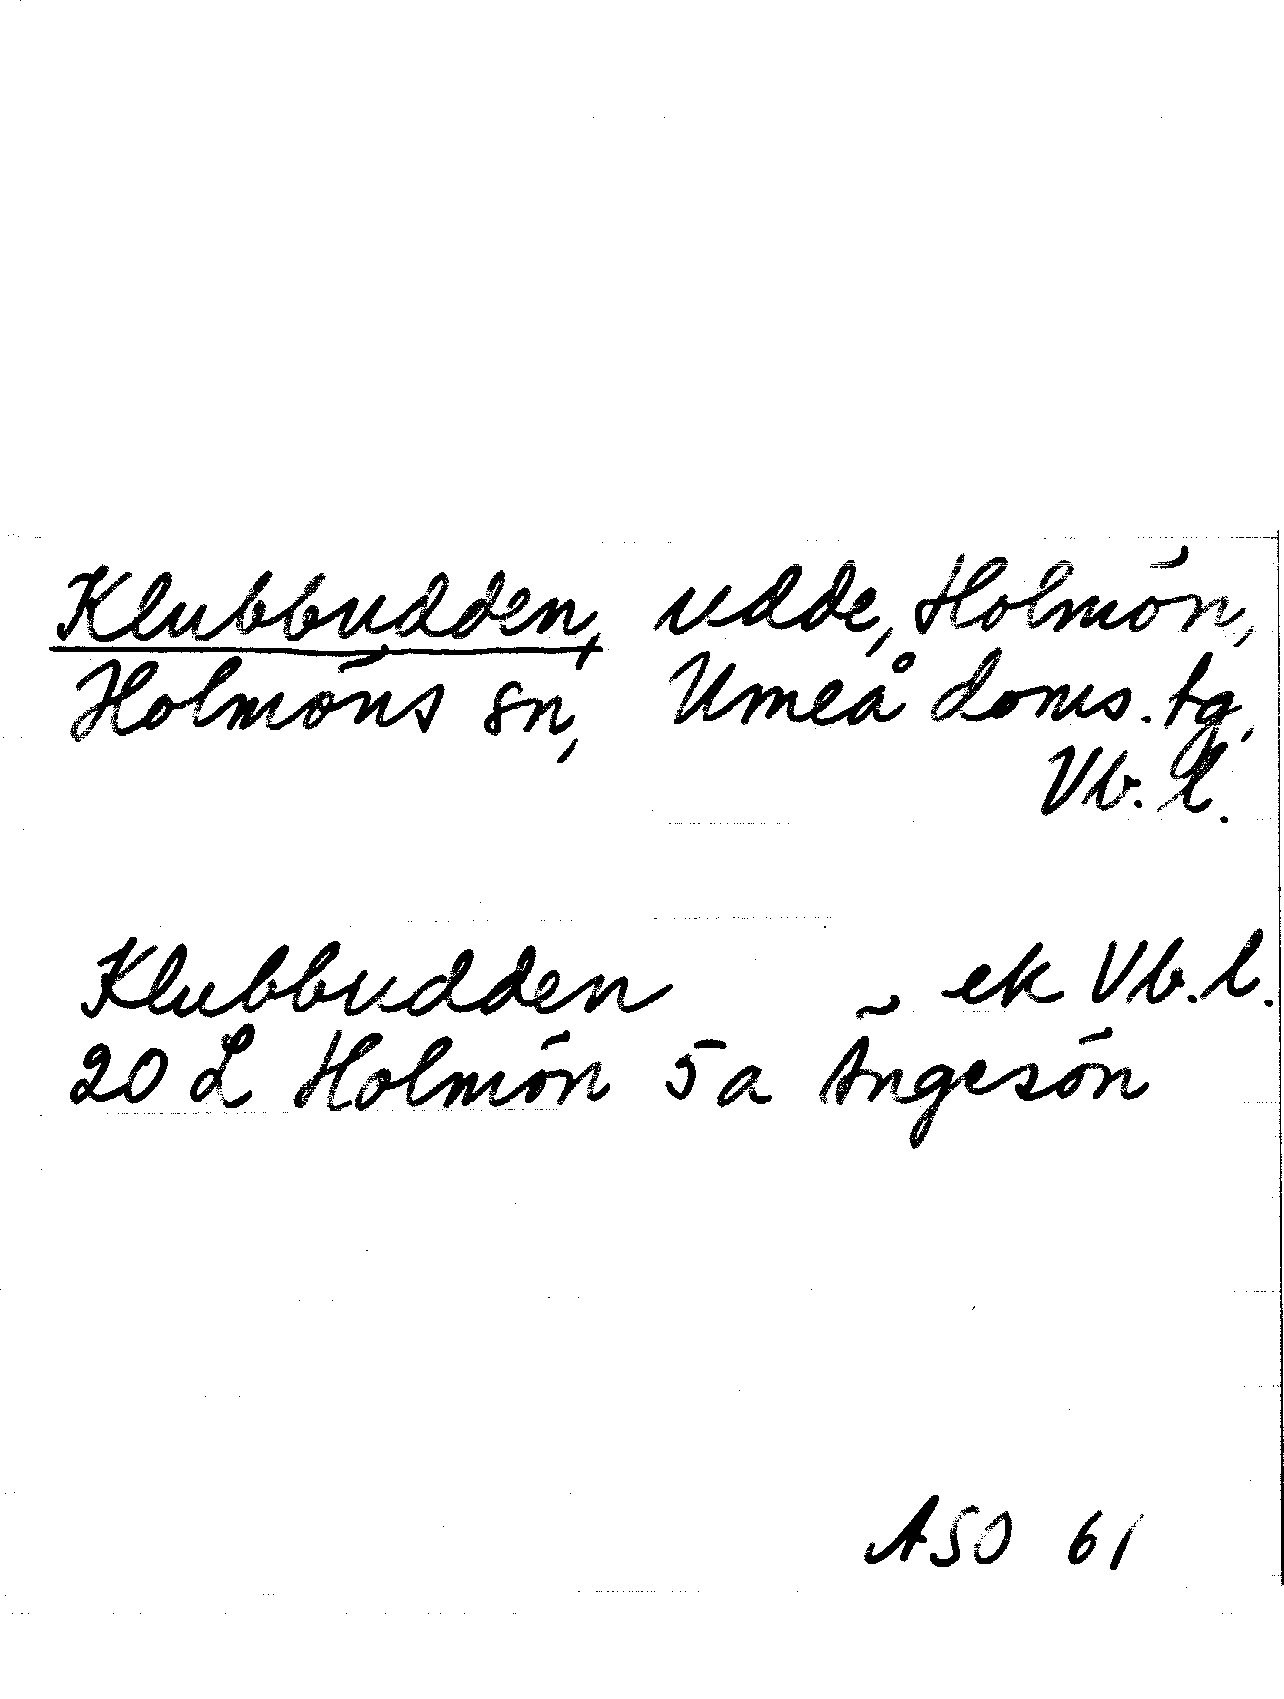 Klubbudden, udde, Holmön,
Holmöns sn, Umeå doms. tg,
Vb. l.
Klubbudden ek Vb. l.
20 L Holmön 5a Ängesön
ASO 61